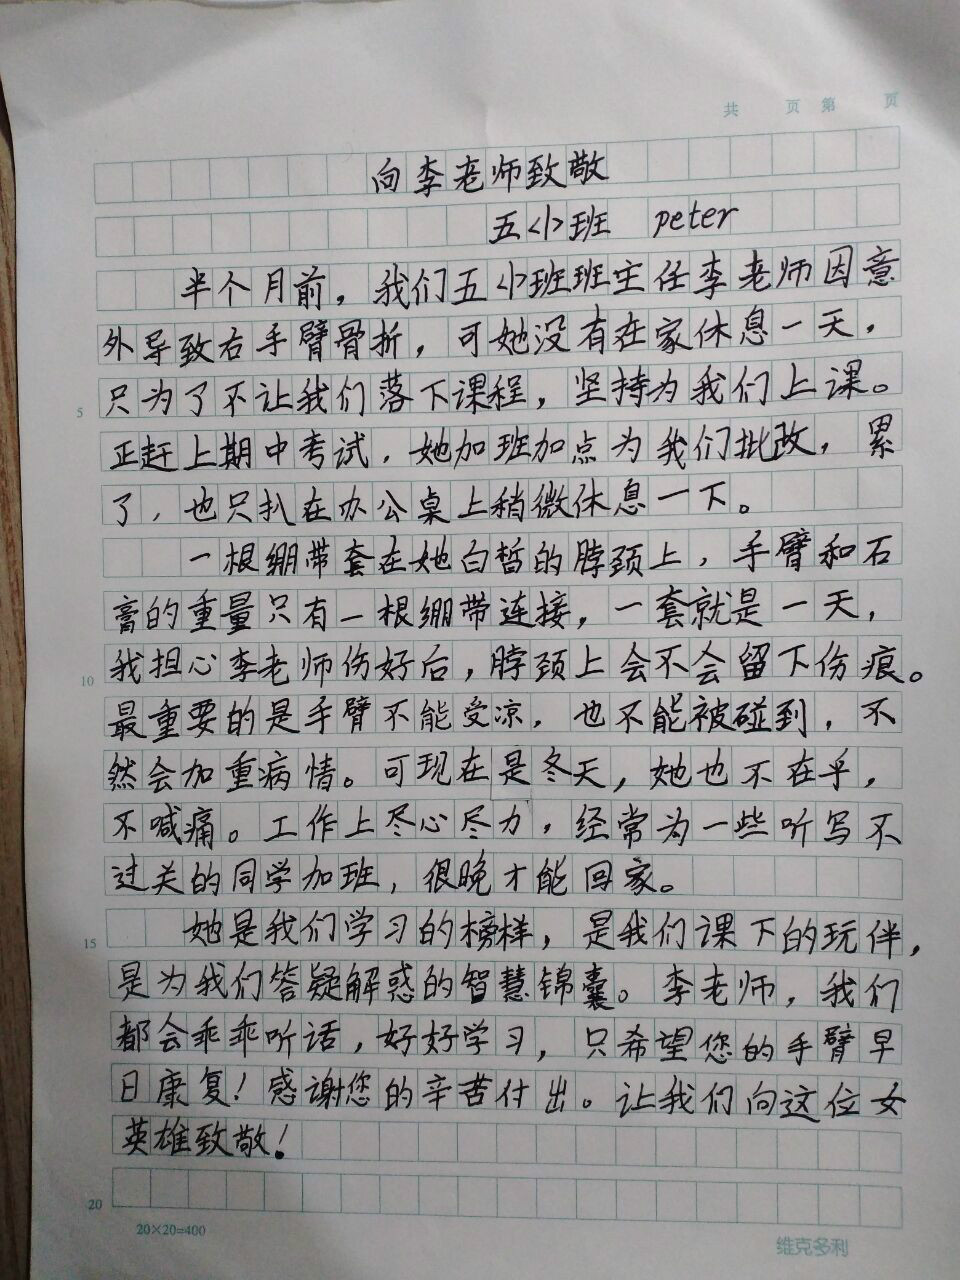 共 页 第 页
向李老师致敬
五小班 peter
半个月前，我们五小班班主任李老师因意
外导致右手臂骨折，可她没有在家休息一天，
5 只为了不让我们落下课程，坚持为我们上课。
正赶上期中考试，她加班加点为我们批改，累
了，也只扒在办公桌上稍微休息一下。
一根绷带套在她白皙的脖颈上，手臂和石
膏的重量只有一根绷带连接，一套就是一天，
10 我担心李老师伤好后，脖颈上会不会留下伤痕。
最重要的是手臂不能受凉，也不能被碰到，不
然会加重病情。可现在是冬天，她也不在乎，
不喊痛。工作上尽心尽力，经常为一些听写不
过关的同学加班，很晚才能回家。
15 她是我们学习的榜样，是我们课下的玩伴，
是为我们答疑解惑的智慧锦囊。李老师，我们
都会乖乖听话，好好学习，只希望您的手臂早
日康复！感谢您的辛苦付出。让我们向这位女
英雄致敬！
20
20×20=400
维克多利